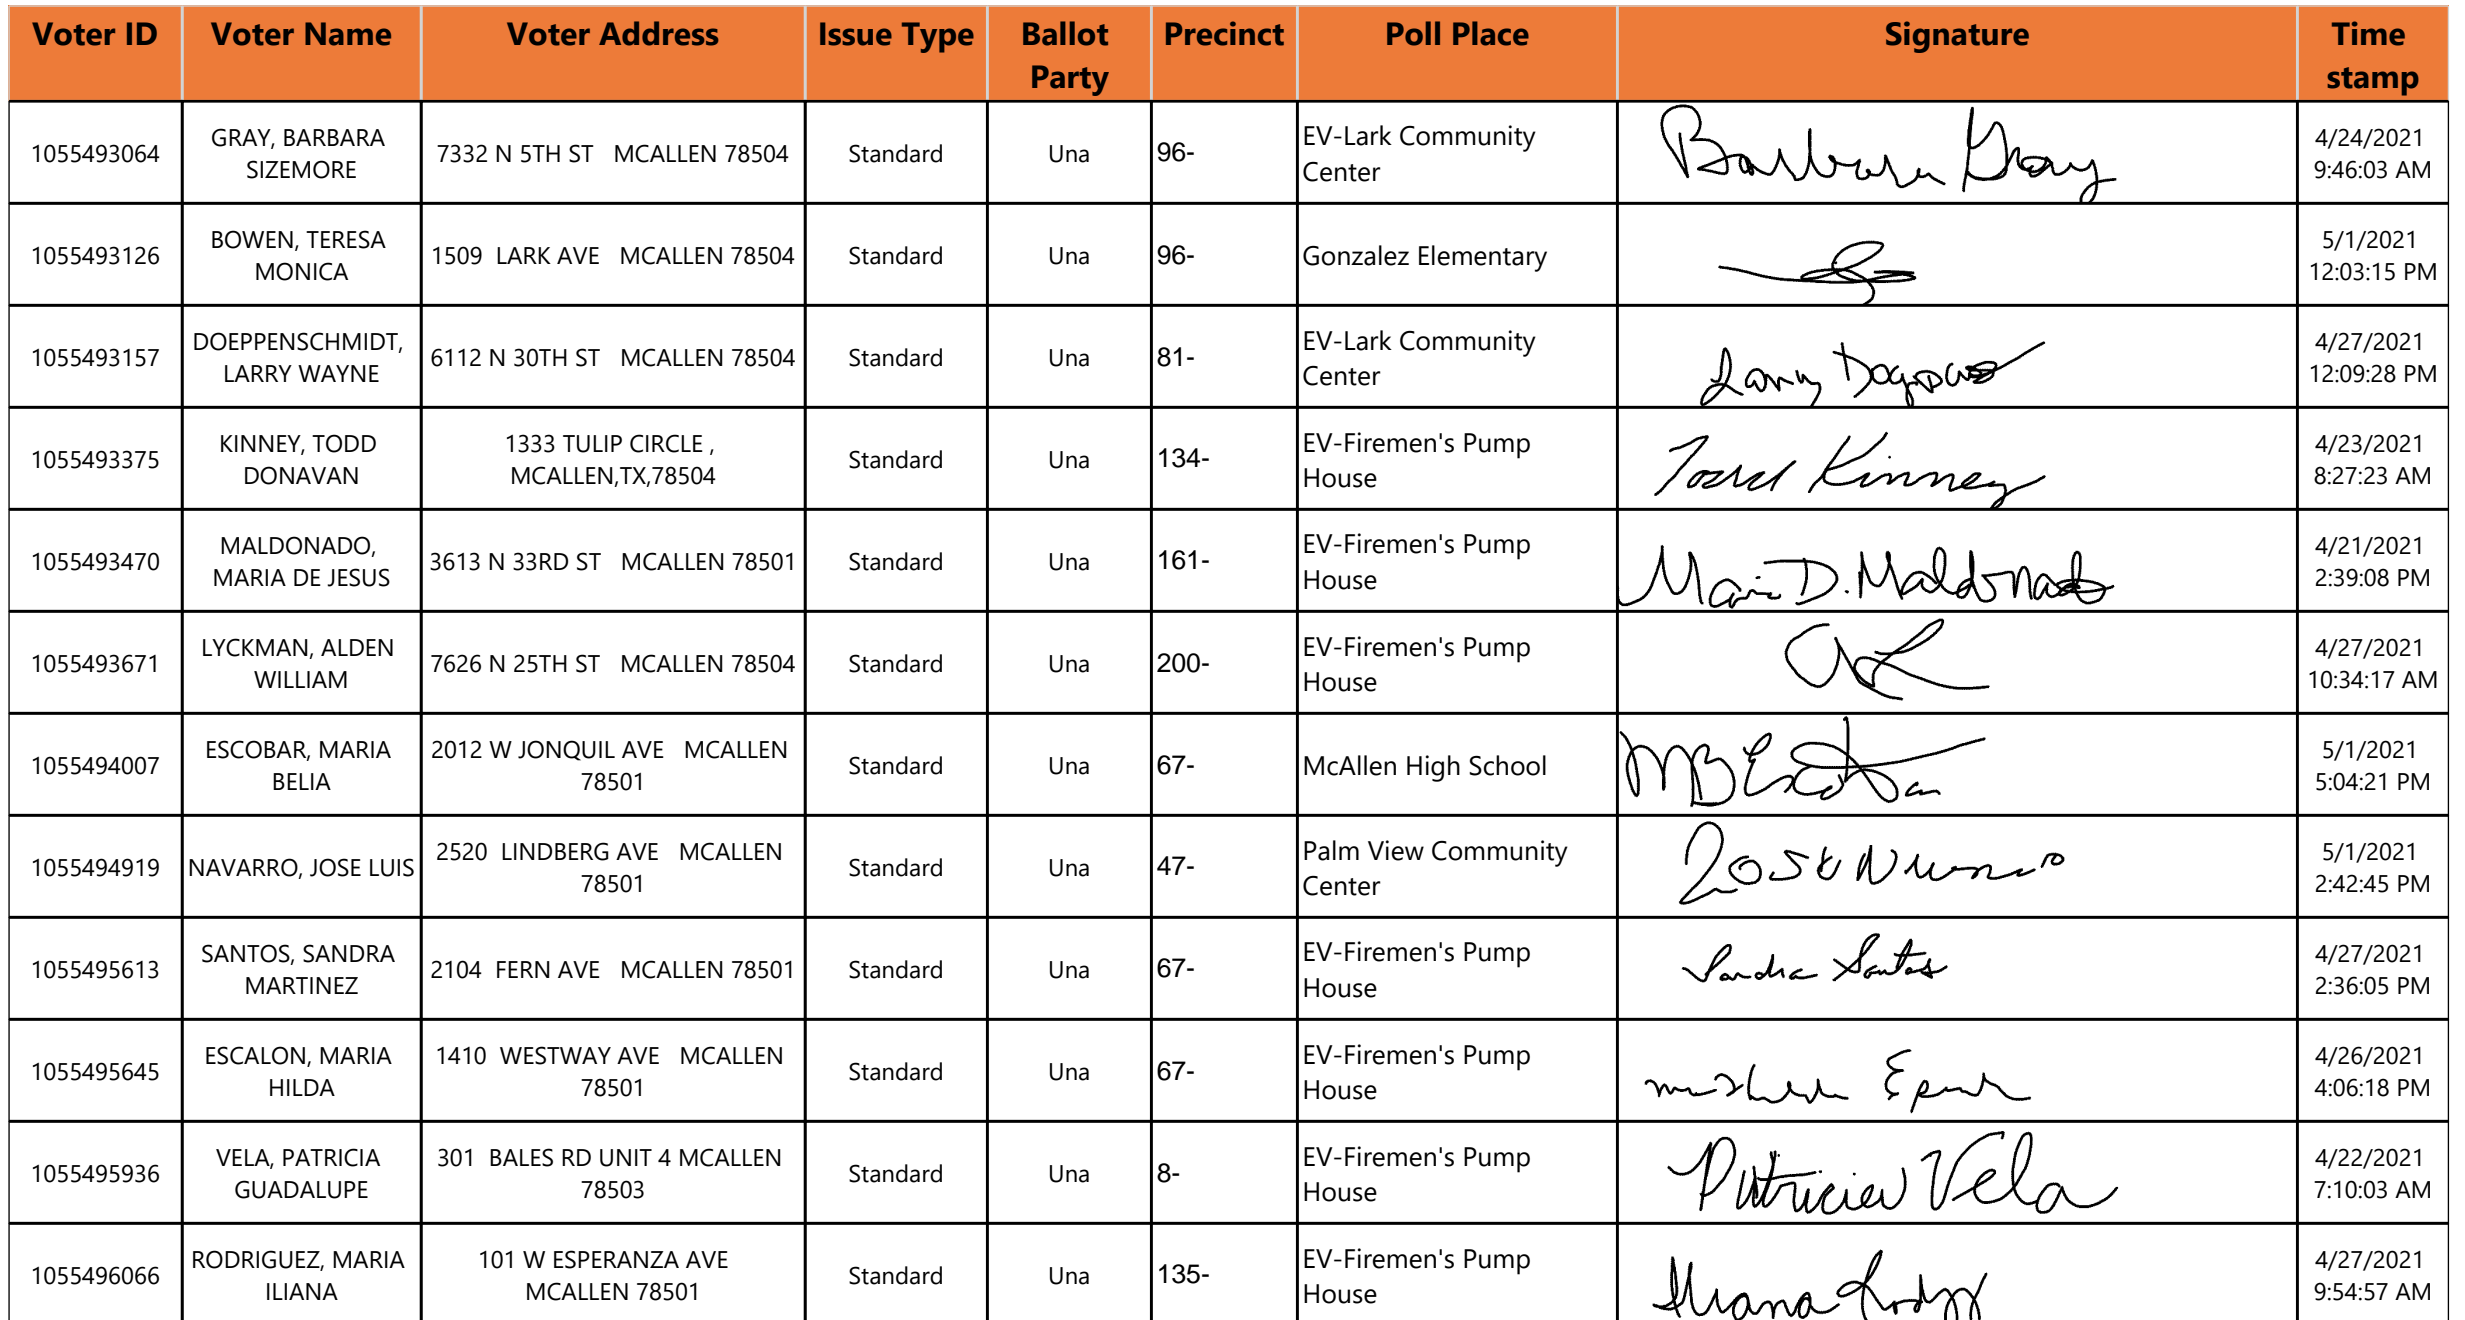 Voter ID Voter Name Voter Address Issue Type Ballot Party Precinct Poll Place Signature Time stamp
1055493064 GRAY, BARBARA SIZEMORE 7332 N 5TH ST MCALLEN 78504 Standard Una 96- EV-Lark Community Center Barbara Gray 4/24/2021 9:46:03 AM
1055493126 BOWEN, TERESA MONICA 1509 LARK AVE MCALLEN 78504 Standard Una 96- Gonzalez Elementary 5/1/2021 12:03:15 PM
1055493157 DOEPPENSCHMIDT, LARRY WAYNE 6112 N 30TH ST MCALLEN 78504 Standard Una 81- EV-Lark Community Center Larry 4/27/2021 12:09:28 PM
1055493375 KINNEY, TODD DONAVAN 1333 TULIP CIRCLE , MCALLEN,TX,78504 Standard Una 134- EV-Firemen's Pump House Todd Kinney 4/23/2021 8:27:23 AM
1055493470 MALDONADO, MARIA DE JESUS 3613 N 33RD ST MCALLEN 78501 Standard Una 161- EV-Firemen's Pump House Maria D. Maldonado 4/21/2021 2:39:08 PM
1055493671 LYCKMAN, ALDEN WILLIAM 7626 N 25TH ST MCALLEN 78504 Standard Una 200- EV-Firemen's Pump House 4/27/2021 10:34:17 AM
1055494007 ESCOBAR, MARIA BELIA 2012 W JONQUIL AVE MCALLEN 78501 Standard Una 67- McAllen High School MB Escobar 5/1/2021 5:04:21 PM
1055494919 NAVARRO, JOSE LUIS 2520 LINDBERG AVE MCALLEN 78501 Standard Una 47- Palm View Community Center Jose 5/1/2021 2:42:45 PM
1055495613 SANTOS, SANDRA MARTINEZ 2104 FERN AVE MCALLEN 78501 Standard Una 67- EV-Firemen's Pump House Sandra Santos 4/27/2021 2:36:05 PM
1055495645 ESCALON, MARIA HILDA 1410 WESTWAY AVE MCALLEN 78501 Standard Una 67- EV-Firemen's Pump House 4/26/2021 4:06:18 PM
1055495936 VELA, PATRICIA GUADALUPE 301 BALES RD UNIT 4 MCALLEN 78503 Standard Una 8- EV-Firemen's Pump House Patricia Vela 4/22/2021 7:10:03 AM
1055496066 RODRIGUEZ, MARIA ILIANA 101 W ESPERANZA AVE MCALLEN 78501 Standard Una 135- EV-Firemen's Pump House Iliana 4/27/2021 9:54:57 AM